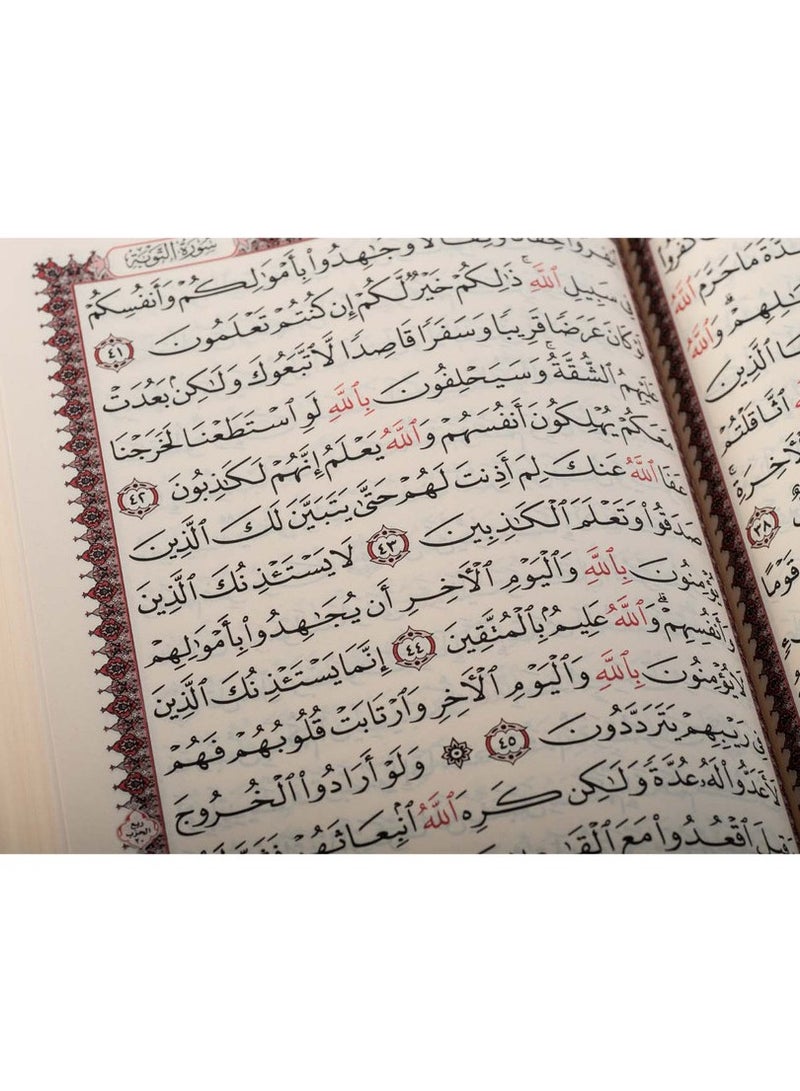 سُورَةُ التَّوۡبَةِ
وَجَٰهِدُواْ بِأَمۡوَٰلِكُمۡ وَأَنفُسِكُمۡ
فِي سَبِيلِ ٱللَّهِۚ ذَٰلِكُمۡ خَيۡرٞ لَّكُمۡ إِن كُنتُمۡ تَعۡلَمُونَ ٤١
لَوۡ كَانَ عَرَضٗا قَرِيبٗا وَسَفَرٗا قَاصِدٗا لَّٱتَّبَعُوكَ وَلَٰكِنۢ بَعُدَتۡ
عَلَيۡهِمُ ٱلشُّقَّةُۚ وَسَيَحۡلِفُونَ بِٱللَّهِ لَوِ ٱسۡتَطَعۡنَا لَخَرَجۡنَا
مَعَكُمۡ يُهۡلِكُونَ أَنفُسَهُمۡ وَٱللَّهُ يَعۡلَمُ إِنَّهُمۡ لَكَٰذِبُونَ ٤٢
عَفَا ٱللَّهُ عَنكَ لِمَ أَذِنتَ لَهُمۡ حَتَّىٰ يَتَبَيَّنَ لَكَ ٱلَّذِينَ
صَدَقُواْ وَتَعۡلَمَ ٱلۡكَٰذِبِينَ ٤٣ لَا يَسۡتَـٔۡذِنُكَ ٱلَّذِينَ
يُؤۡمِنُونَ بِٱللَّهِ وَٱلۡيَوۡمِ ٱلۡأٓخِرِ أَن يُجَٰهِدُواْ بِأَمۡوَٰلِهِمۡ
وَأَنفُسِهِمۡۗ وَٱللَّهُ عَلِيمُۢ بِٱلۡمُتَّقِينَ ٤٤ إِنَّمَا يَسۡتَـٔۡذِنُكَ ٱلَّذِينَ
لَا يُؤۡمِنُونَ بِٱللَّهِ وَٱلۡيَوۡمِ ٱلۡأٓخِرِ وَٱرۡتَابَتۡ قُلُوبُهُمۡ فَهُمۡ
فِي رَيۡبِهِمۡ يَتَرَدَّدُونَ ٤٥ ۞ وَلَوۡ أَرَادُواْ ٱلۡخُرُوجَ
لَأَعَدُّواْ لَهُۥ عُدَّةٗ وَلَٰكِن كَرِهَ ٱللَّهُ ٱنۢبِعَاثَهُمۡ
وَقِيلَ ٱقۡعُدُواْ مَعَ
ربع
الحزب
٢٠
كَفَرُواْ
مَا حَرَّمَ ٱللَّهُ
وَٱللَّهُ
ٱلَّذِينَ
ٱثَّاقَلۡتُمۡ
٣٨
قَوۡمًا